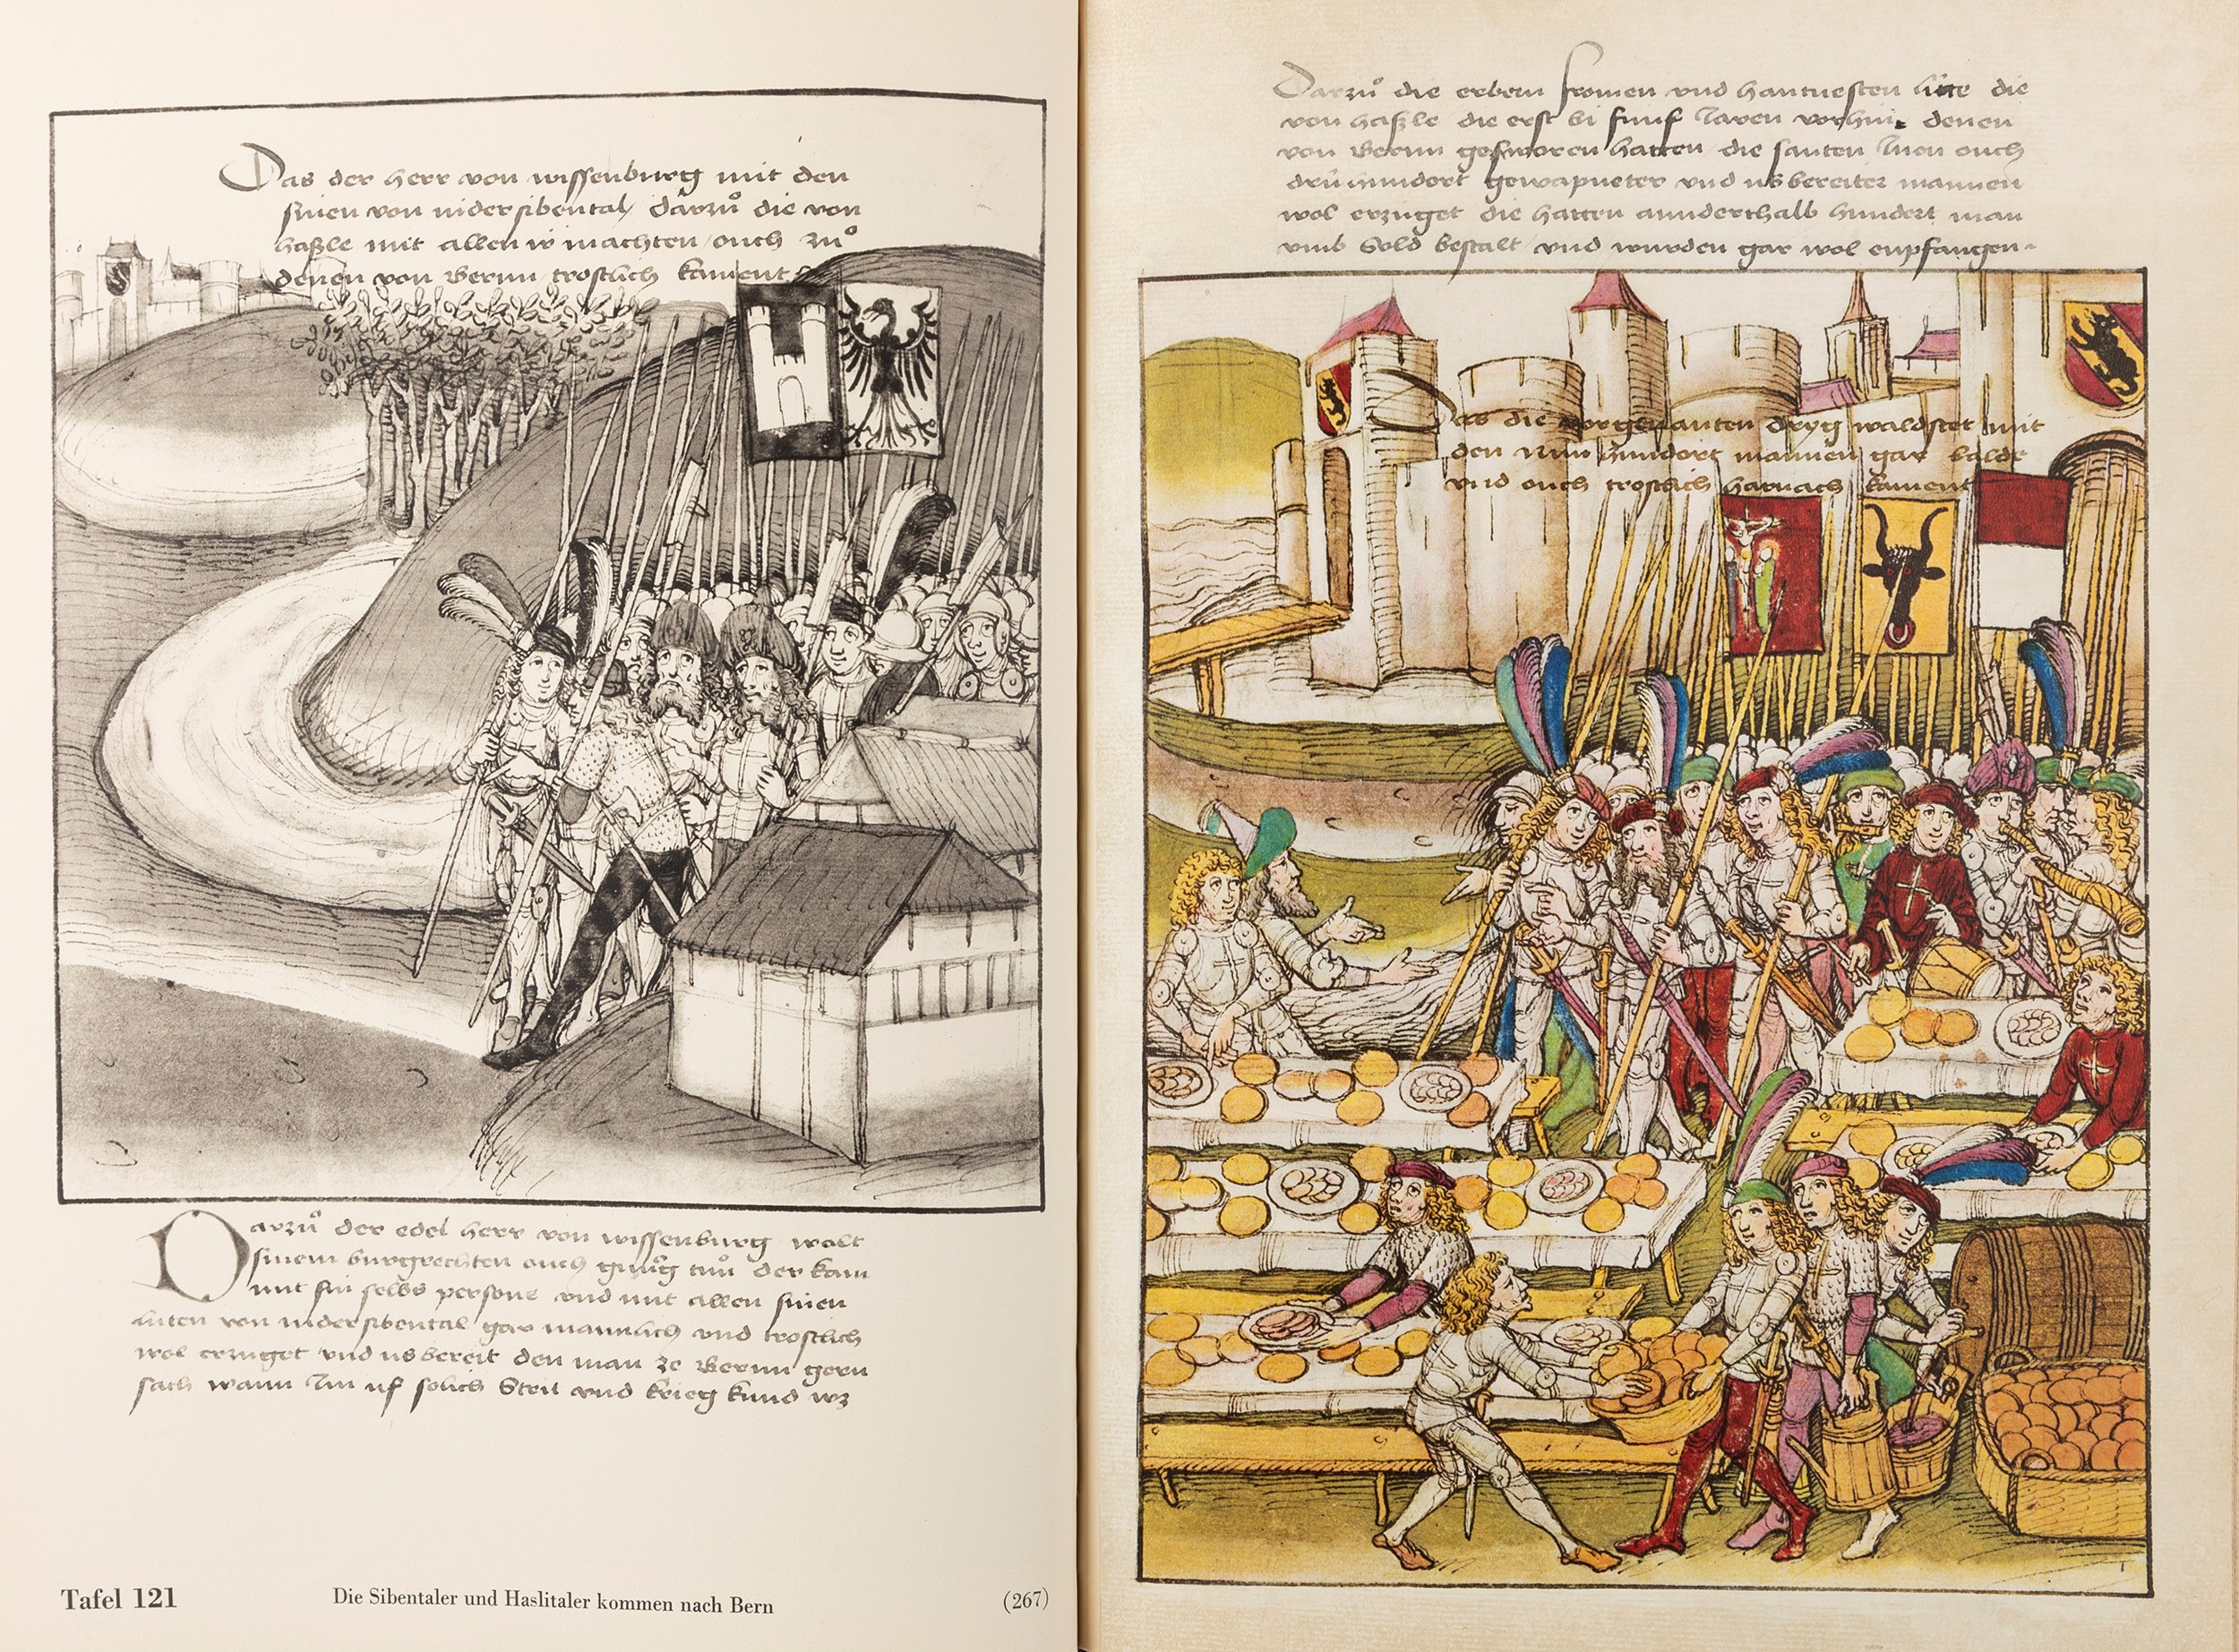 Das der herr von wissenburg mit den
sinen von nidersibental / darzuͦ die von
haßle mit allen ir machten / ouch zuͦ
denen von Bernn trostlich kament
Darzuͦ der edel herr von wissenburg wolt
sinem burgrechten ouch gnuͦg tuͦn der kam
mit sin selbs persone und mit allen sinen
luten von nidersibental gar manlich und trostlich
wol erzuget und usbereit den man ze Bernn gern
sach wann Im uf solich Strit und krieg kund wz
Tafel 121
Die Sibentaler und Haslitaler kommen nach Bern
(267)
Darzuͦ die erbern fromen und hantvesten lüte die
von haßle die erst bi funf Jaren vorhin denen
von Bernn gesworen hatten die santen Inen ouch
drühundert gewapneter und usbereiter mannen
wol erzuget die hatten annderthalb hundert man
umb Sold bestalt und wurden gar wol enpfangen
Das die vorgenanten dryg waldstet mit
den Nün hundert mannen gar balde
und ouch trostlich harnach kament